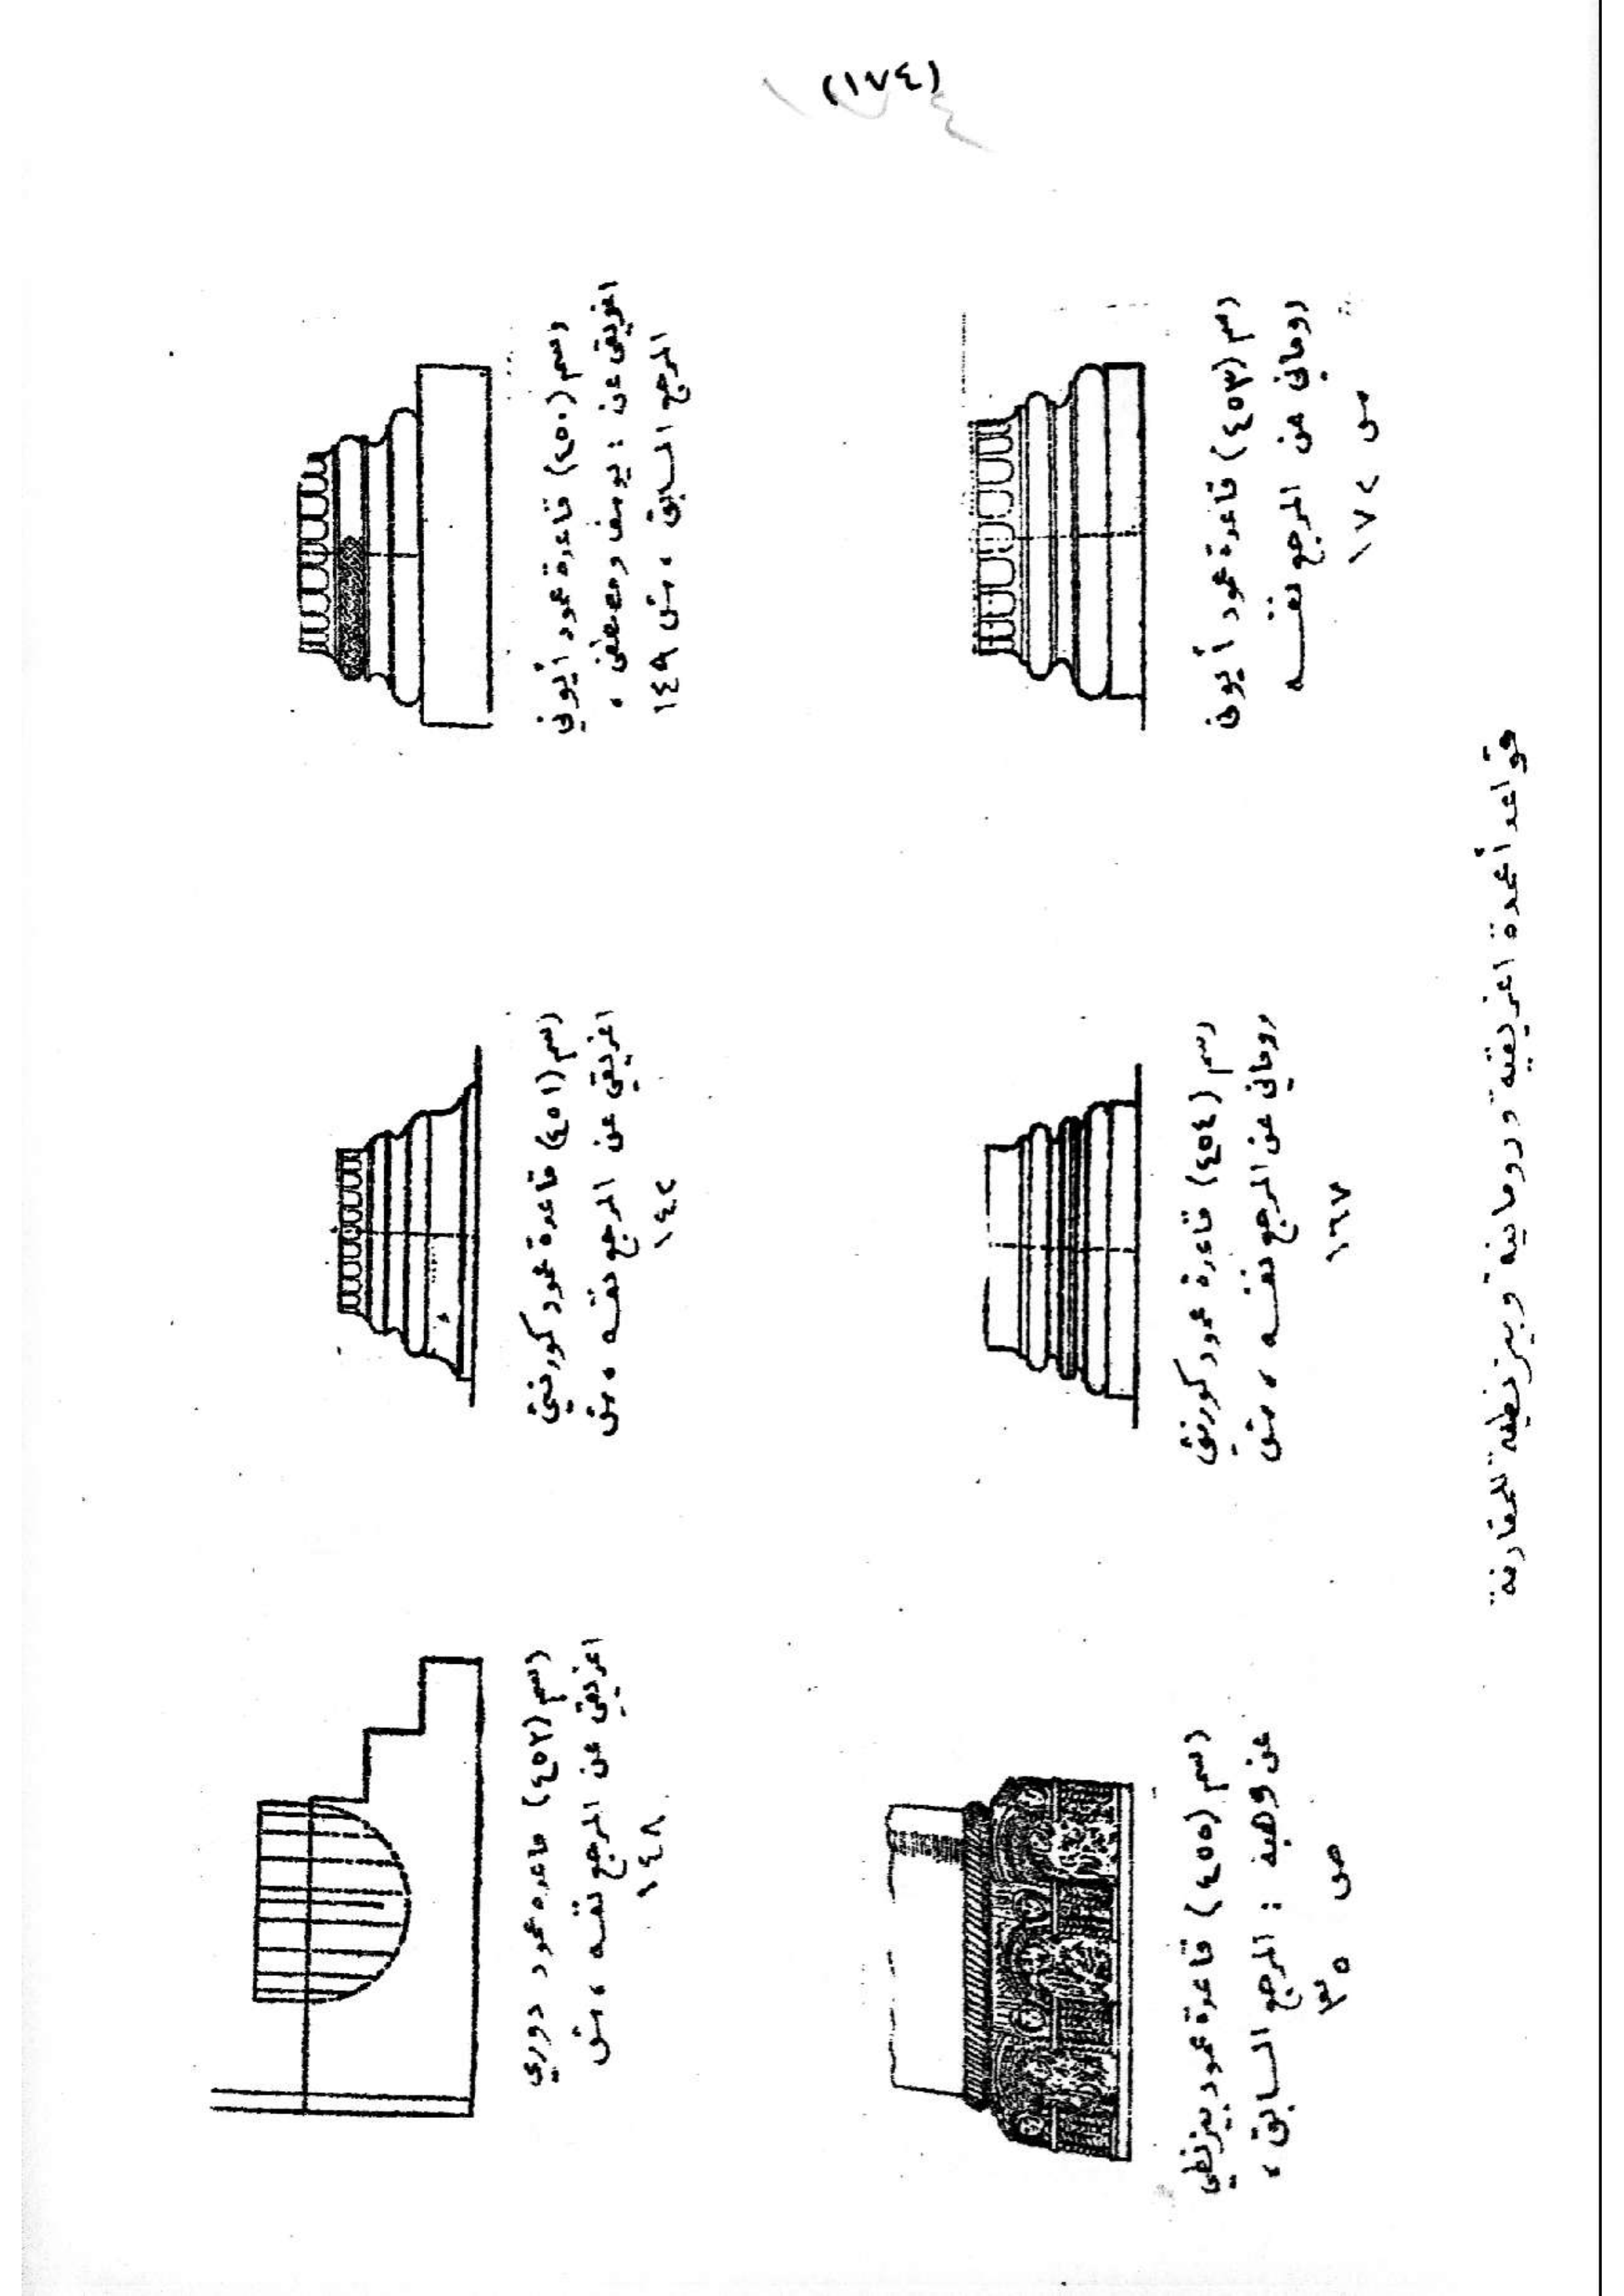 (١٧٤)
١٧٤
رسم (٤٥٠) قاعدة عمود أيوني
اغريقي عن : يوسف ومصطفى ،
المرجع السابق ، ش ١٤٩
رسم (٤٥١) قاعدة عمود كورنثي
اغريقي عن المرجع نفسه ، ش
١٤٢
رسم (٤٥٢) قاعدة عمود دوري
اغريقي عن المرجع نفسه ، ش
١٤٨
رسم (٤٥٣) قاعدة عمود أيوني
روماني عن المرجع نفسه
ص ١٧٢
رسم (٤٥٤) قاعدة عمود كورنثي
روماني عن المرجع نفسه ، ش
١٦٧
رسم (٤٥٥) قاعدة عمود بيزنطي
عن وهيبه : المرجع السابق ،
ص ٣٥
قواعد أعمدة اغريقية ورومانية وبيزنطية للمقارنة